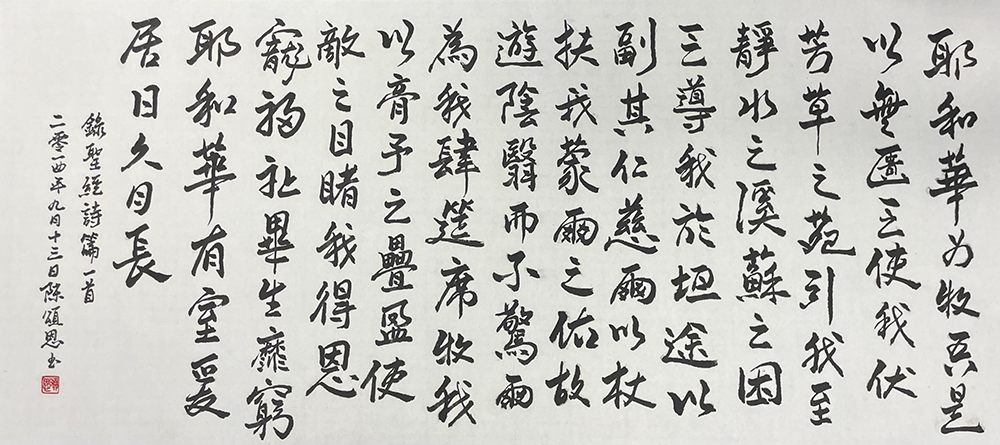 耶和華为牧吾是
以無匱乏使我伏
芳草之苑引我至
靜水之溪蘇之困
乏導我於坦途以
副其仁慈爾以杖
扶我蒙爾之佑故
遊陰翳而不驚爾
為我肆筵席牧我
以膏予之疊盈使
敵之目睹我得恩
寵福祉畢生靡窮
耶和華有室爰
居日久月長
錄聖經詩篇一首
二零一四年九月十三日陳頌恩书